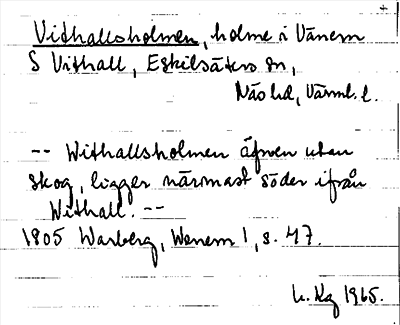 Vithallsholmen, holme i Vänern
S Vithall, Eskilsäters sn,
Näs hd, Värml. l.
-- Withallsholmen äfven utan
skog, ligger närmast söder ifrån
Withall. --
1805 Warberg, Wenern 1, s. 47.
1965.